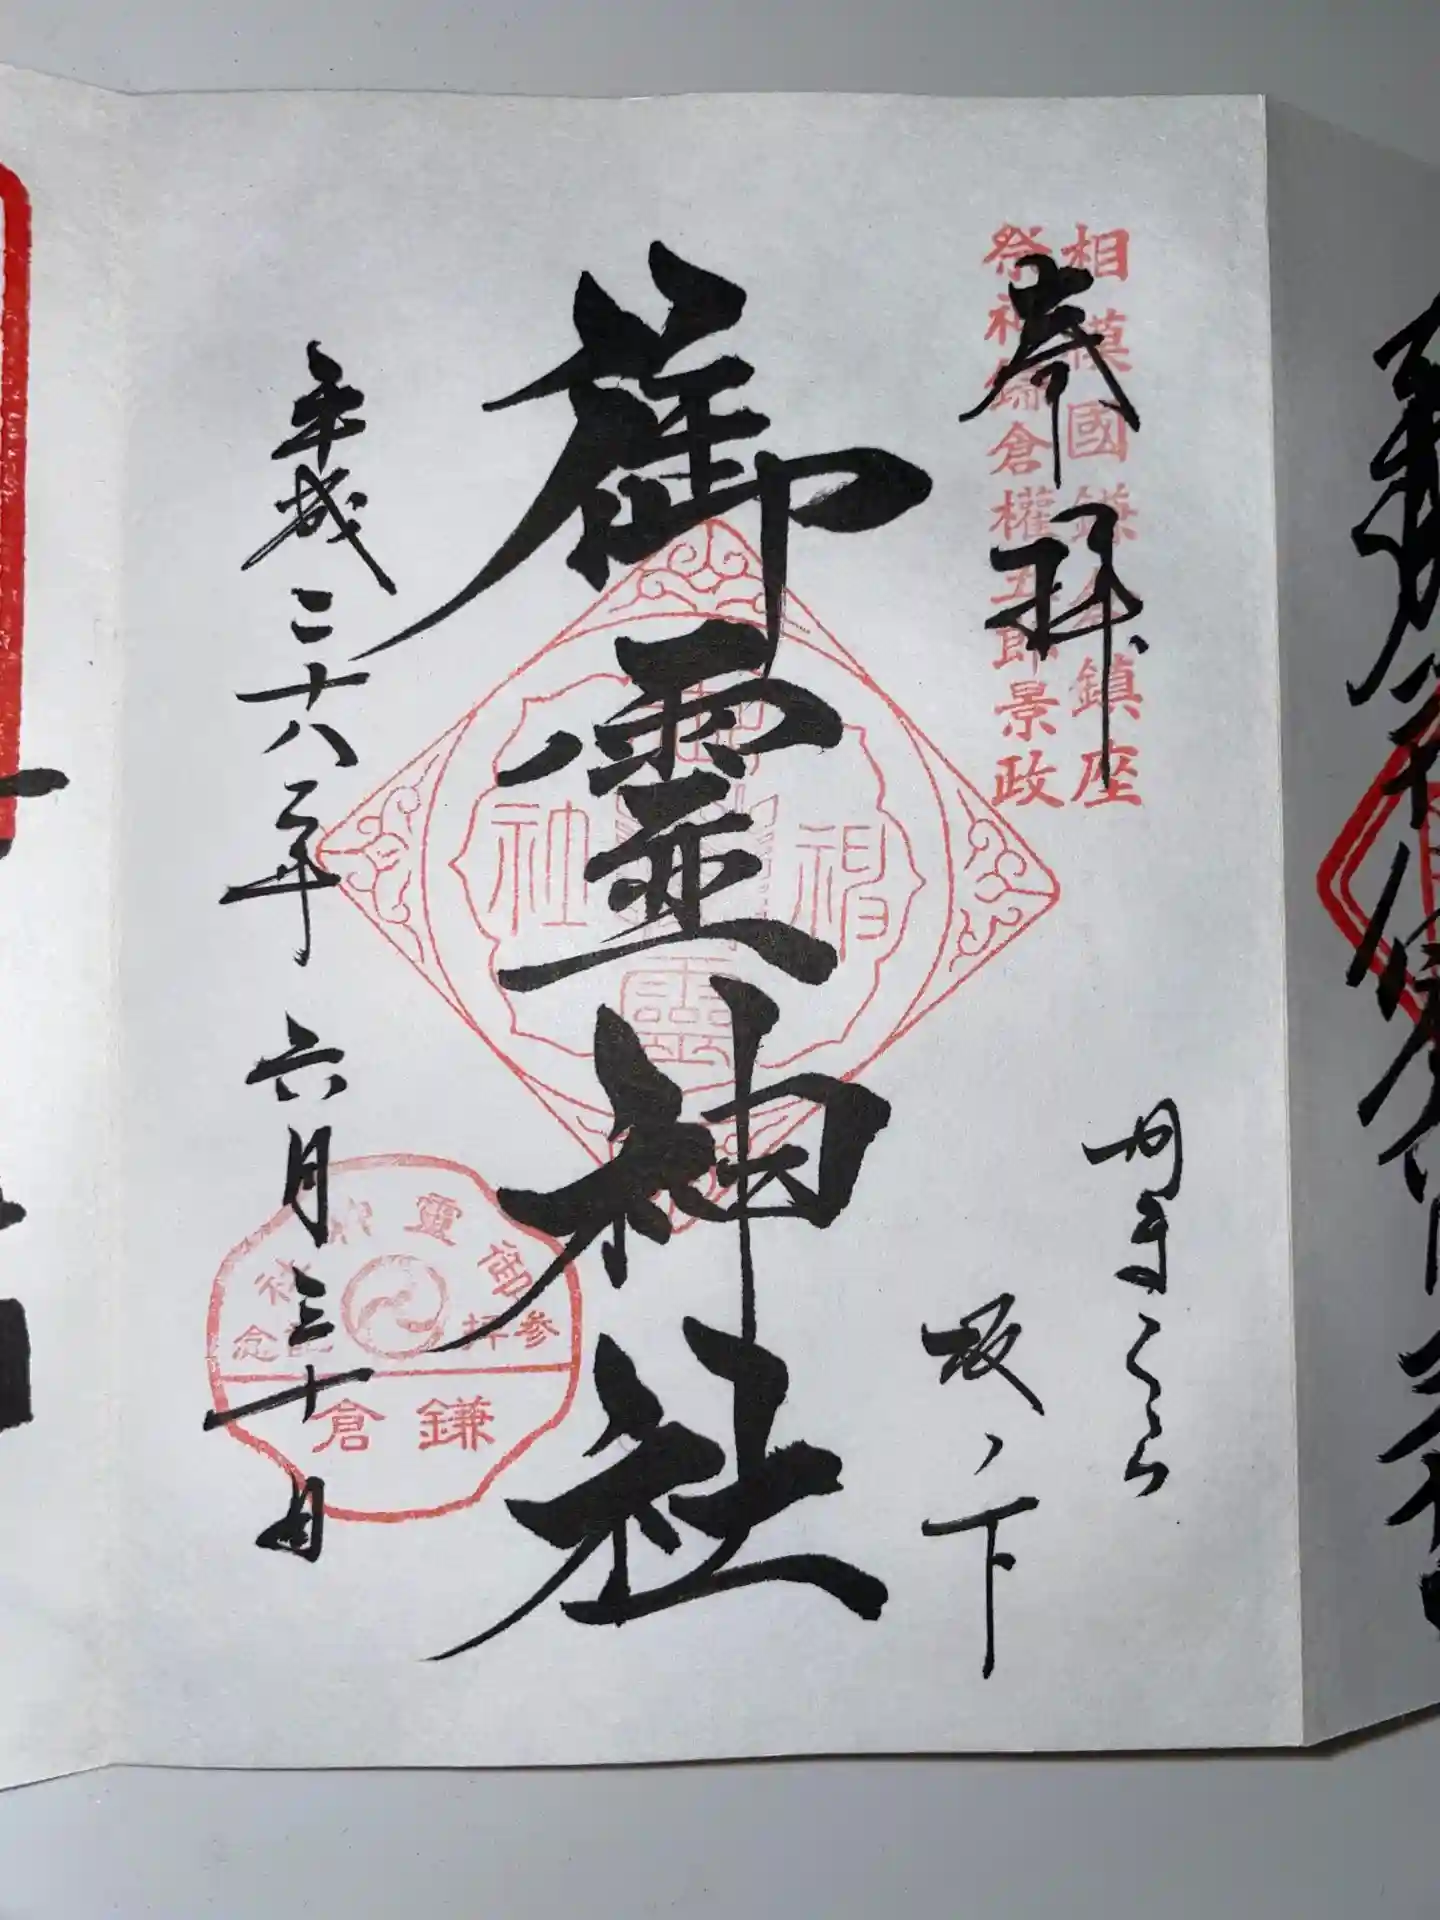 相模國鎌倉鎮座
祭神鎌倉權五郎景政
奉拝
かまくら
坂ノ下
御靈神社
平成二十八年六月三十日
御靈神社
御靈神社
参拝記念
鎌倉